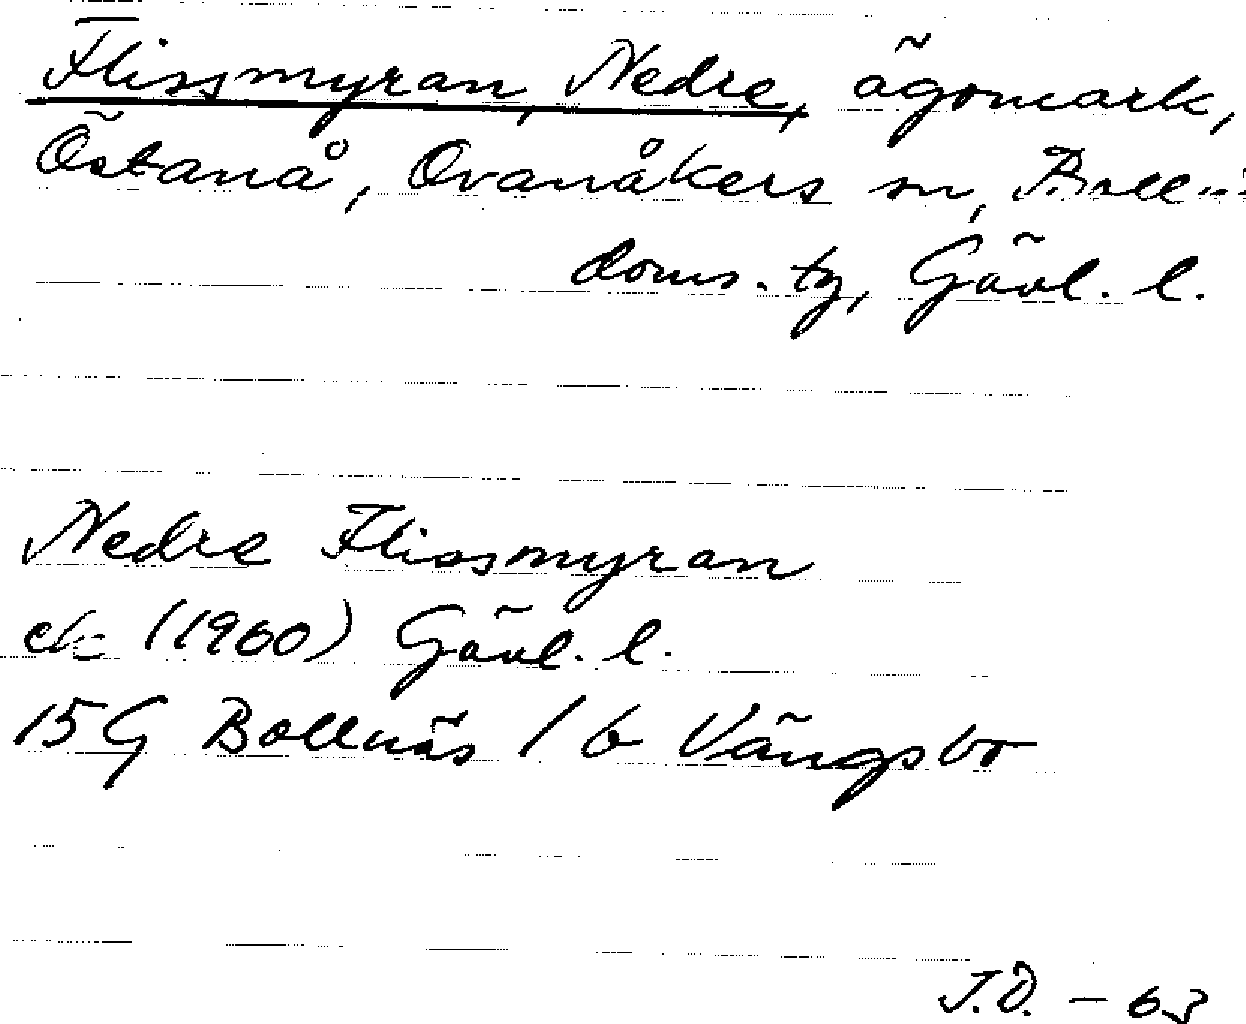 Flissmyran, Nedre, ägomark,
Östanå, Ovanåkers sn, Bolln.
doms. tg, Gävl. l.
Nedre Flissmyran
ek (1960) Gävl. l.
15 G Bollnäs 1 b Vängsbo
J.Ö. - 63